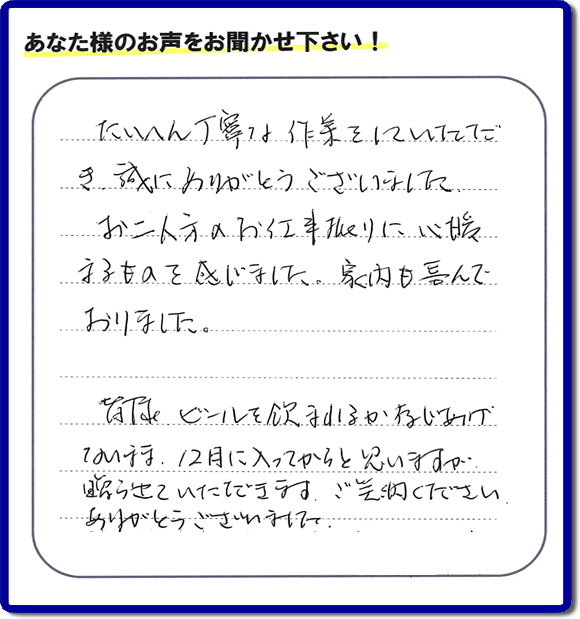 あなた様のお声をお聞かせ下さい！
たいへん丁寧な作業をしていただ
き、誠にありがとうございました。
お二人方のお仕事振りに、心暖
まるものを感じました。家内も喜んで
おりました。
皆様 ビールを飲まれるか存じあげ
ないまま、12月に入ってからと思いますが
贈らせていただきます。ご笑納ください。
ありがとうございました。